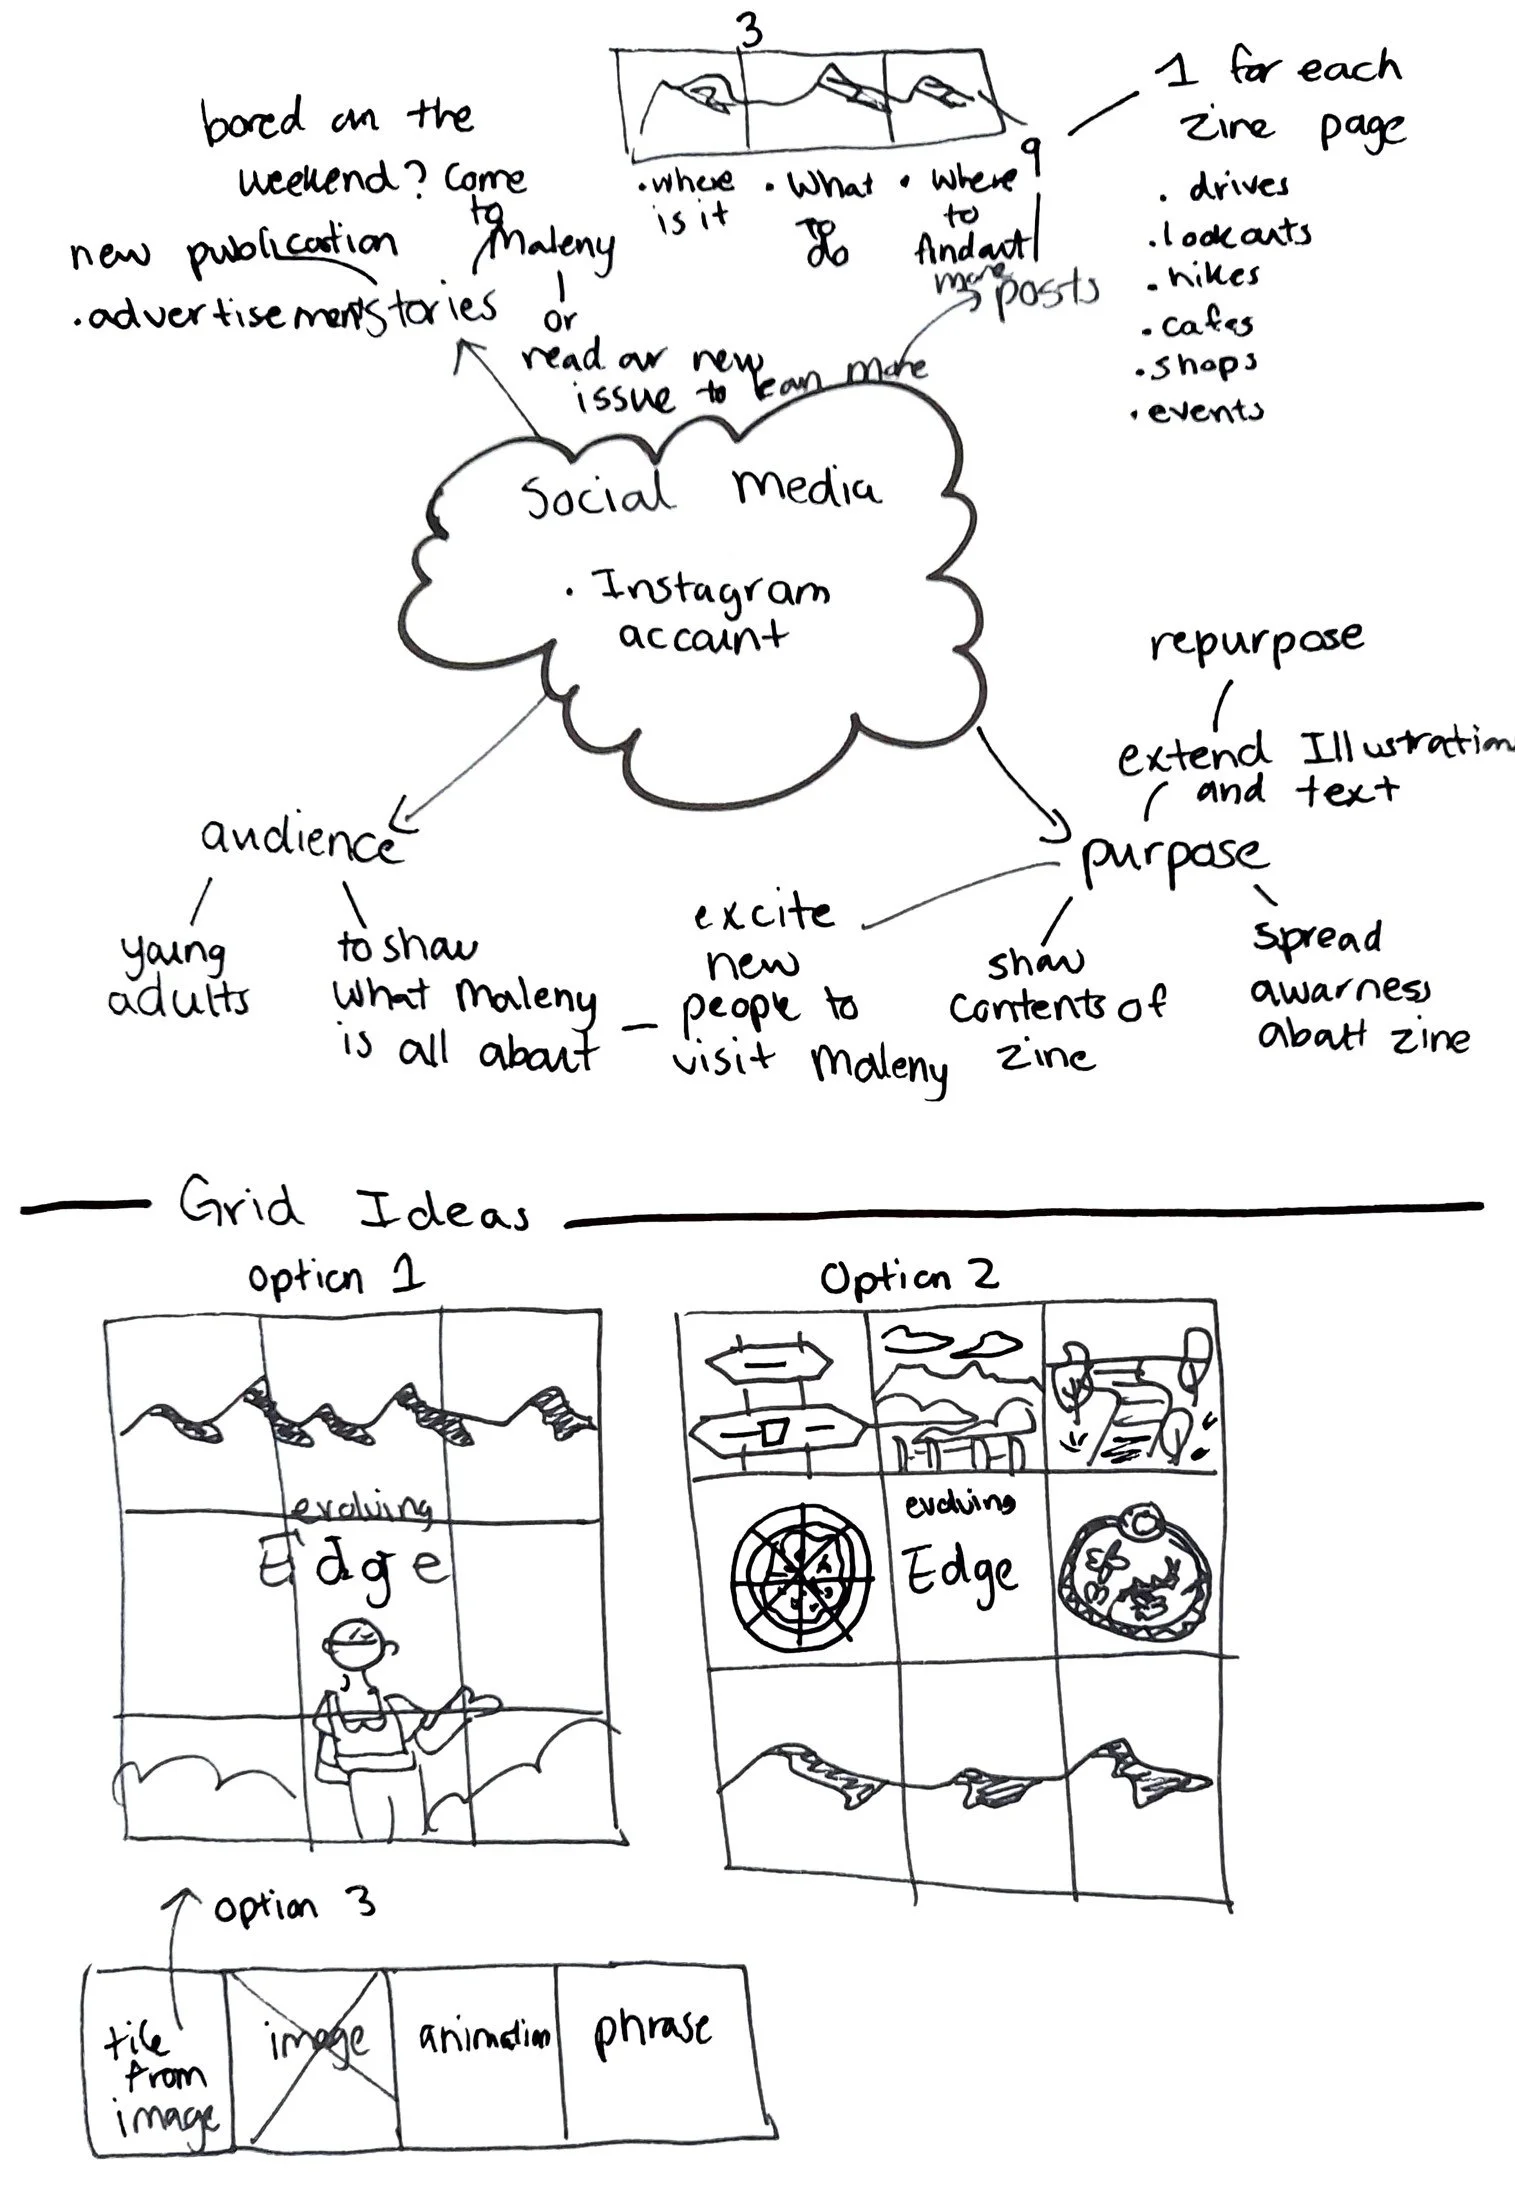 3
1 for each
zine page
9
. drives
. lookouts
. hikes
. cafes
. shops
. events
bored on the
weekend? Come
to
Maleny
or
read our new
issue to lean more
new publication
. advertisement
stories
. where
is it
. What
To
do
. where
to
find out
more
posts
Social media
. Instagram
account
repurpose
extend Illustration
and text
purpose
audience
young
adults
to show
what Maleny
is all about
excite
new
people to
visit Maleny
show
contents of
zine
spread
awarness
about zine
Grid Ideas
option 1
evolving
Edge
Option 2
evolving
Edge
option 3
tile
from
image
image
animation
phrase